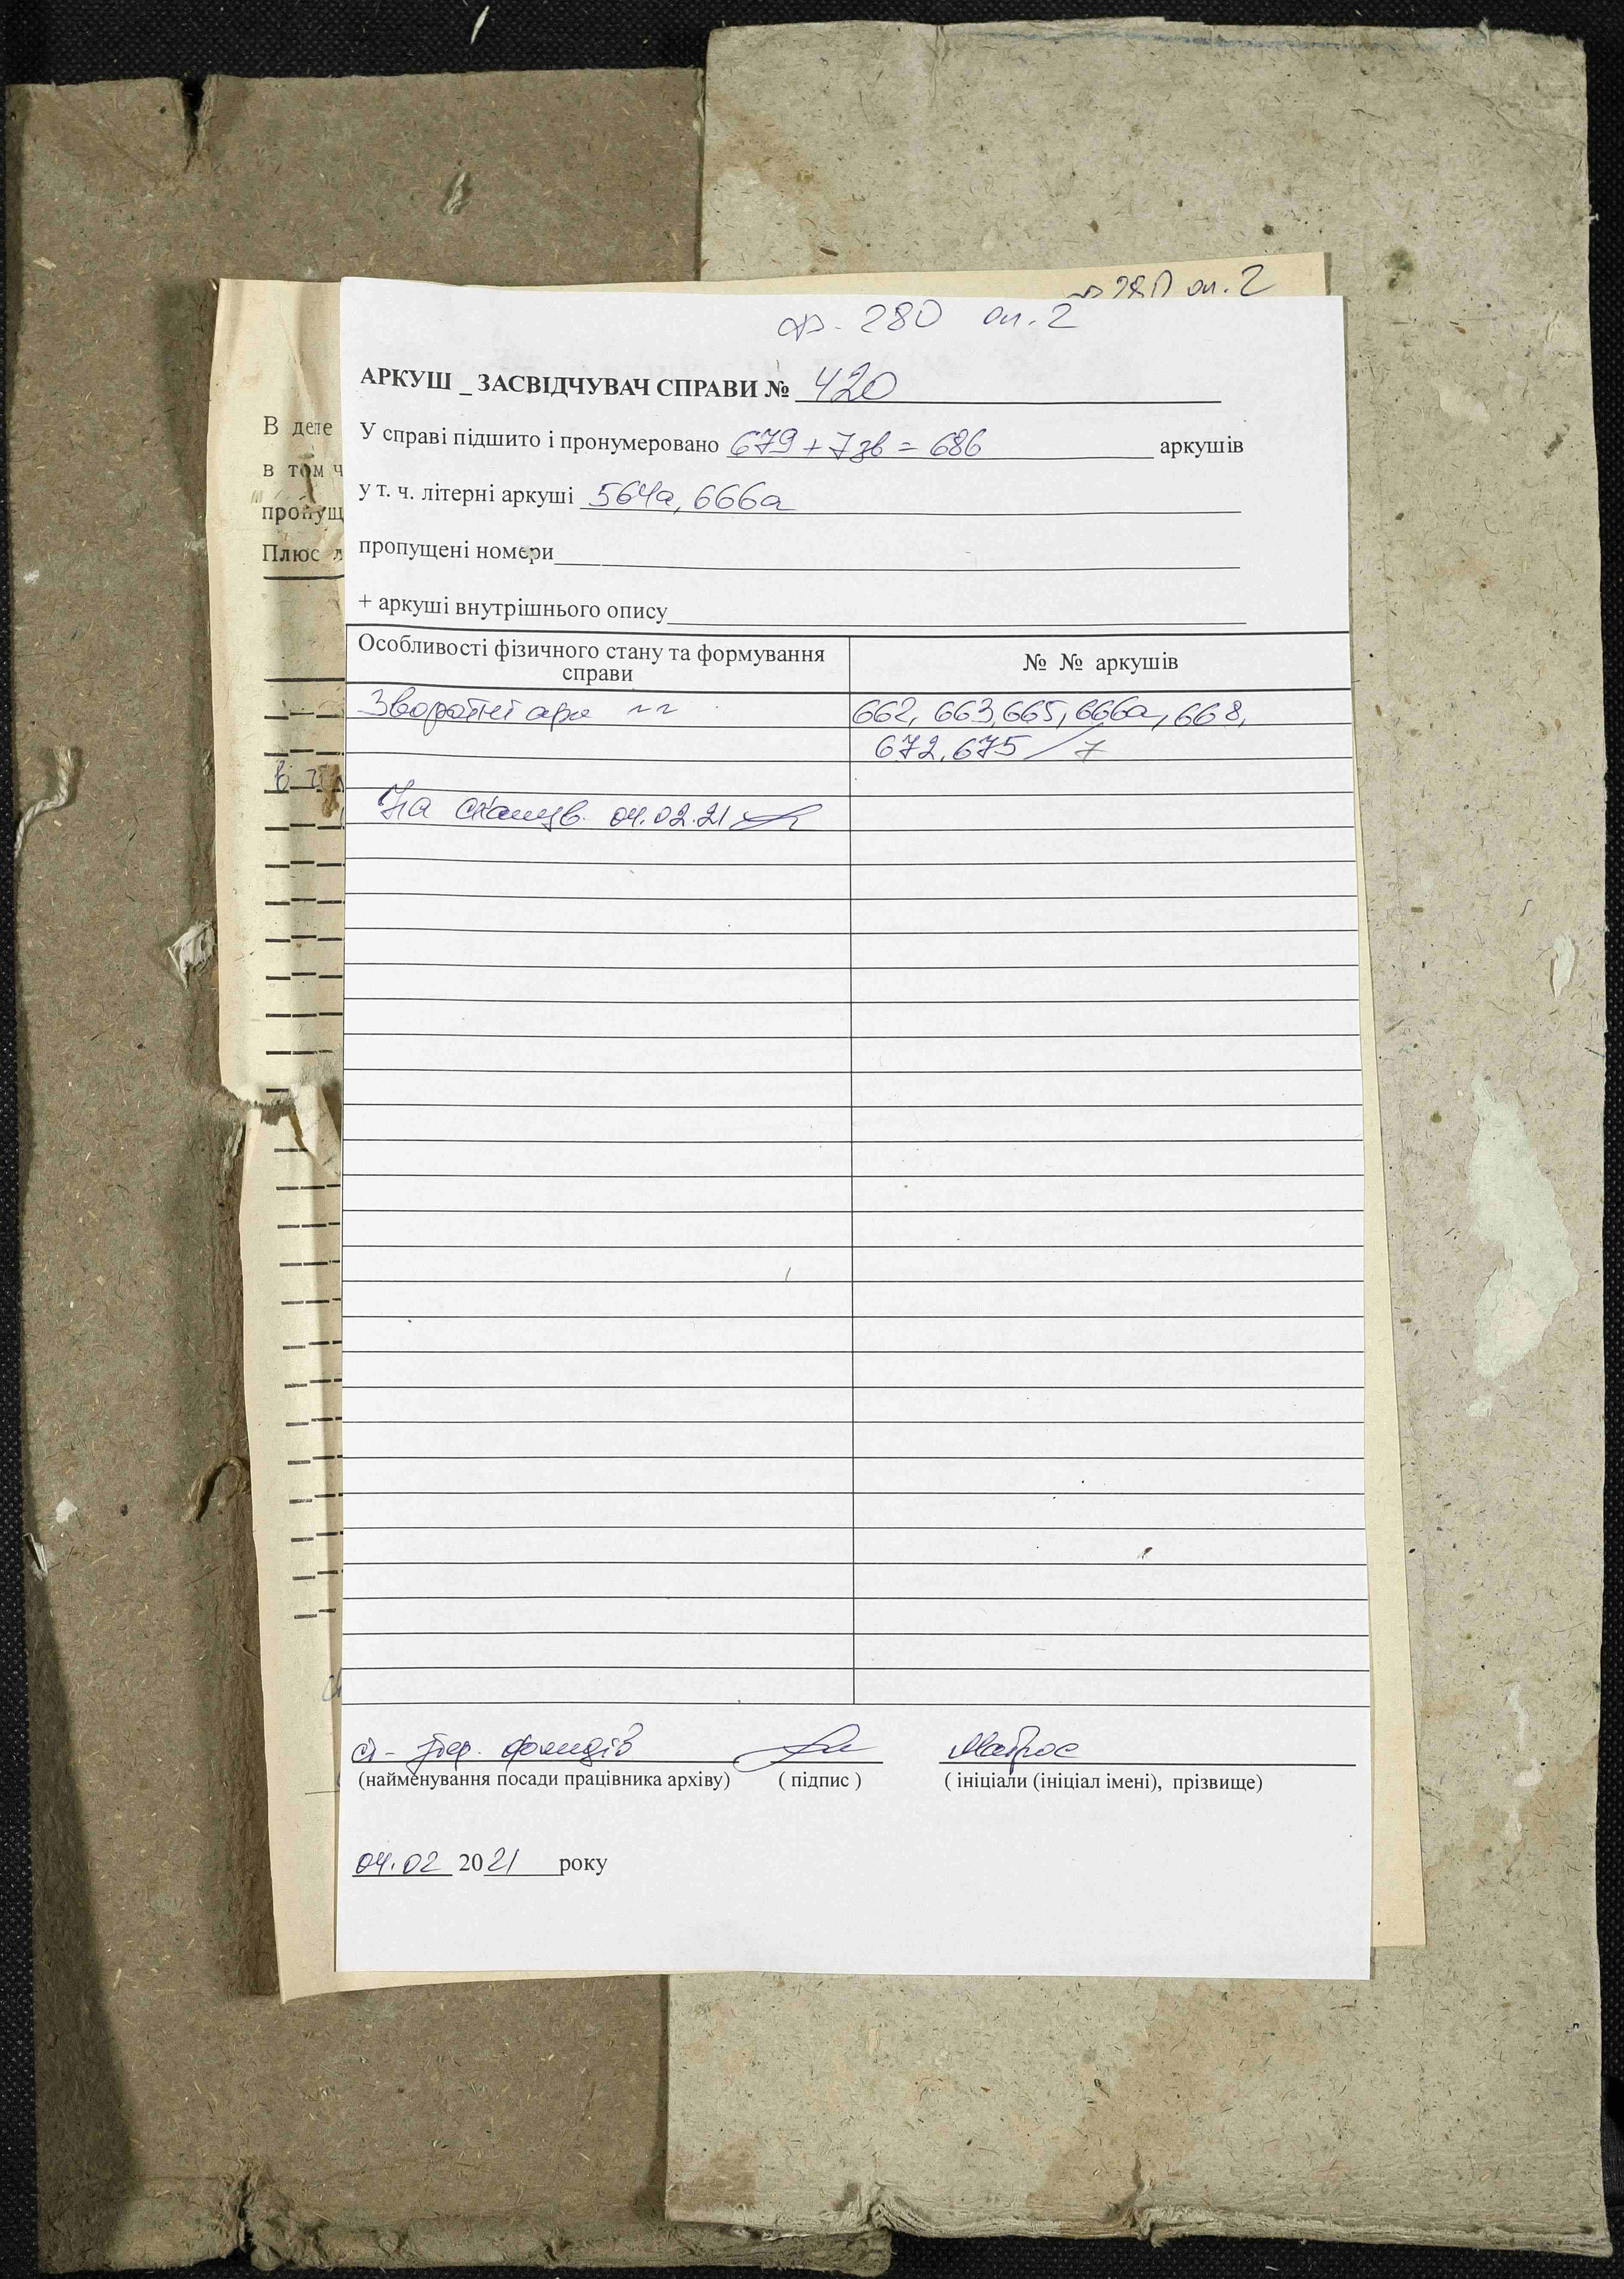 ф 280 оп. 2
ф. 280 оп. 2
АРКУШ _ ЗАСВІДЧУВАЧ СПРАВИ № 420
В деле
У справі підшито і пронумеровано 679 + 7 зв = 686 аркушів
в том ч
у т. ч. літерні аркуші 564а, 666а
пропущ
пропущені номери
Плюс л
+ аркуші внутрішнього опису
Особливості фізичного стану та формування
справи
№ № аркушів
Зворотні арк 662, 663, 665, 666а, 668,
672, 675 / 7
На сканув. 04.02.21
ст. фондів Матрос
(найменування посади працівника архіву) ( підпис ) ( ініціали (ініціал імені), прізвище)
04.02 2021 року